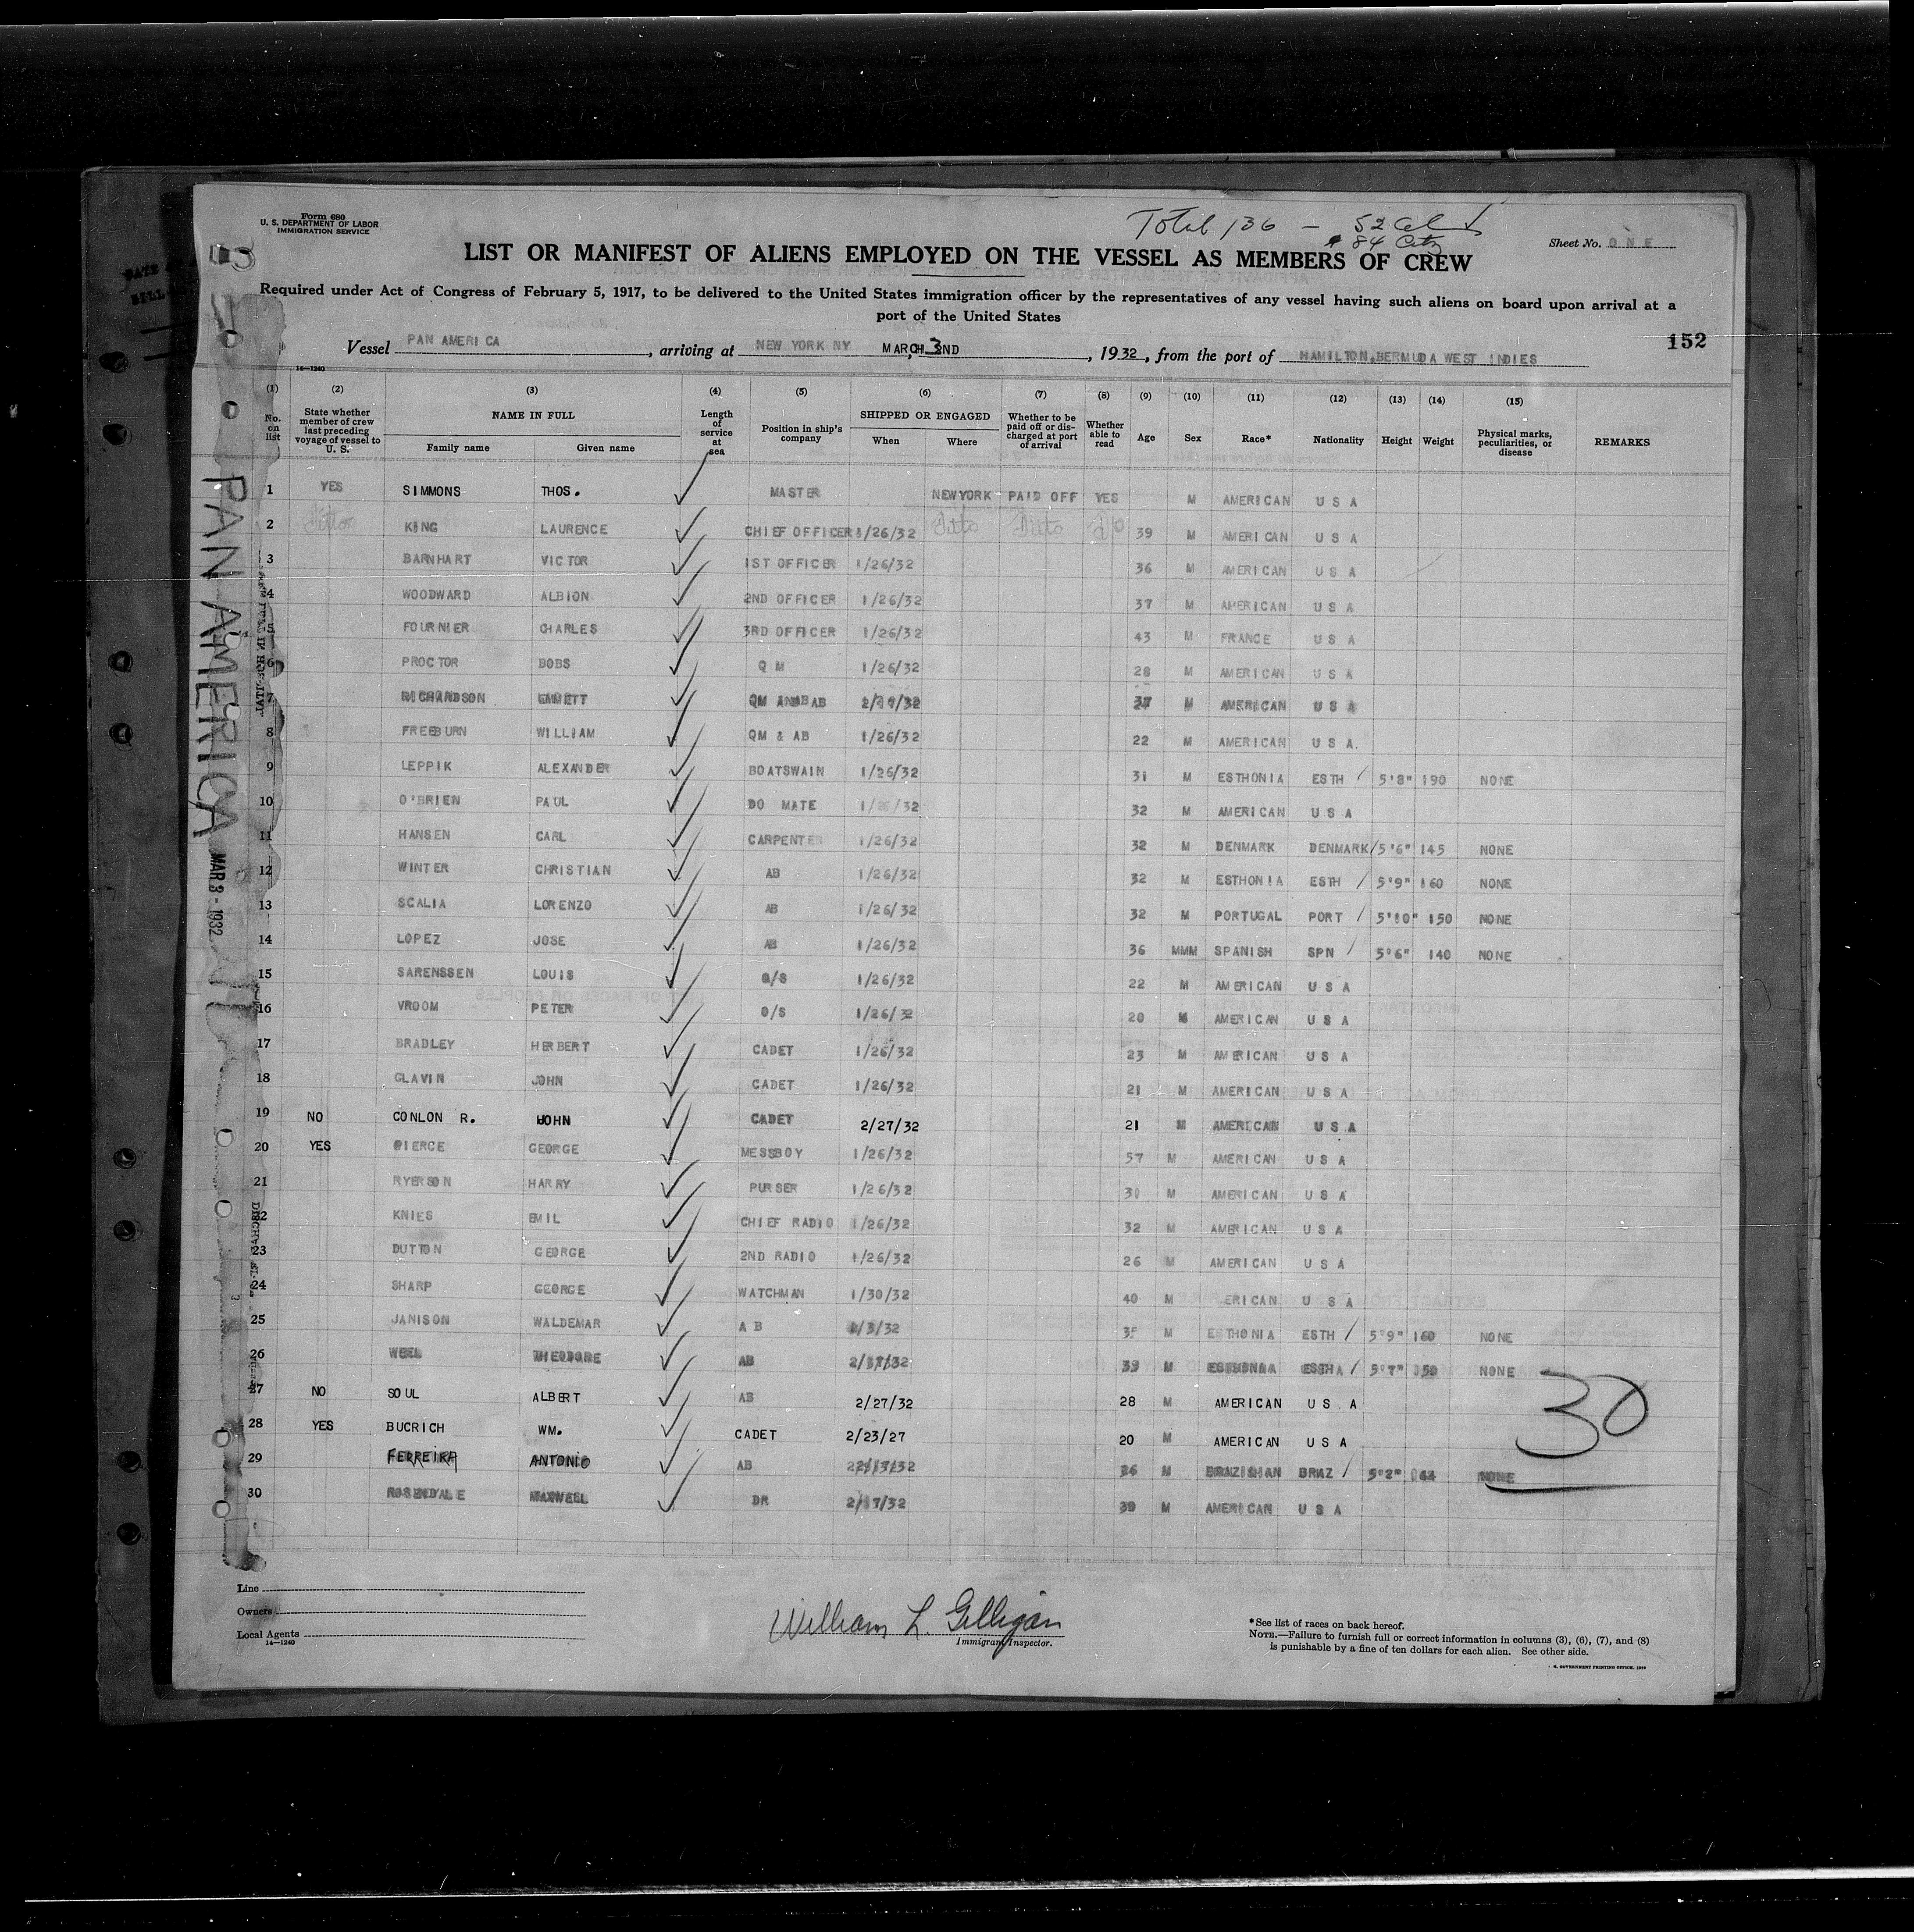 Form 680
U. S. DEPARTMENT OF LABOR
IMMIGRATION SERVICE
Total 136 – 52
84
Sheet No. ONE
LIST OR MANIFEST OF ALIENS EMPLOYED ON THE VESSEL AS MEMBERS OF CREW
Required under Act of Congress of February 5, 1917, to be delivered to the United States immigration officer by the representatives of any vessel having such aliens on board upon arrival at a
port of the United States
152
Vessel PAN AMERICA, arriving at NEW YORK NY MARCH 3ND, 1932, from the port of HAMILTON, BERMUDA WEST INDIES
14—1240
(1) (2) (3) (4) (5) (6) (7) (8) (9) (10) (11) (12) (13) (14) (15)
No. on list State whether member of crew last preceding voyage of vessel to U. S. NAME IN FULL Family name Given name Length of service at sea Position in ship's company SHIPPED OR ENGAGED When Where Whether to be paid off or discharged at port of arrival Whether able to read Age Sex Race* Nationality Height Weight Physical marks, peculiarities, or disease REMARKS
1 YES SIMMONS THOS. MASTER NEWYORK PAID OFF YES M AMERICAN U S A
2 Ditto KING LAURENCE CHIEF OFFICER 1/26/32 Ditto Ditto do 39 M AMERICAN U S A
3 BARNHART VICTOR 1ST OFFICER 1/26/32 36 M AMERICAN U S A
4 WOODWARD ALBION 2ND OFFICER 1/26/32 37 M AMERICAN U S A
5 FOURNIER CHARLES 3RD OFFICER 1/26/32 43 M FRANCE U S A
6 PROCTOR BOBS Q M 1/26/32 28 M AMERICAN U S A
7 RICHARDSON EMMETT QM AB M AMERICAN U S A
8 FREEBURN WILLIAM QM & AB 1/26/32 22 M AMERICAN U S A.
9 LEPPIK ALEXANDER BOATSWAIN 1/26/32 31 M ESTHONIA ESTH / 5'8" 190 NONE
10 O'BRIEN PAUL DO MATE 1/26/32 32 M AMERICAN U S A
11 HANSEN CARL CARPENTER 1/26/32 32 M DENMARK DENMARK / 5'6" 145 NONE
12 WINTER CHRISTIAN AB 1/26/32 32 M ESTHONIA ESTH / 5'9" 160 NONE
13 SCALIA LORENZO AB 1/26/32 32 M PORTUGAL PORT / 5'10" 150 NONE
14 LOPEZ JOSE AB 1/26/32 36 MMM SPANISH SPN / 5'6" 140 NONE
15 SARENSSEN LOUIS O/S 1/26/32 22 M AMERICAN U S A
16 VROOM PETER O/S 1/26/32 20 M AMERICAN U S A
17 BRADLEY HERBERT CADET 1/26/32 23 M AMERICAN U S A
18 GLAVIN JOHN CADET 1/26/32 21 M AMERICAN U S A
19 NO CONLON R. JOHN CADET 2/27/32 21 M AMERICAN U S A
20 YES PIERCE GEORGE MESSBOY 1/26/32 57 M AMERICAN U S A
21 RYERSON HARRY PURSER 1/26/32 30 M AMERICAN U S A
22 KNIES EMIL CHIEF RADIO 1/26/32 32 M AMERICAN U S A
23 DUTTON GEORGE 2ND RADIO 1/26/32 26 M AMERICAN U S A
24 SHARP GEORGE WATCHMAN 1/30/32 40 M ERICAN U S A
25 JANISON WALDEMAR A B /3/32 M ESTHONIA ESTH / 5'9" 160 NONE
26 THEODORE AB 39 M 5'7" 150 NONE
27 NO SOUL ALBERT AB 2/27/32 28 M AMERICAN U S A
28 YES BUCRICH WM. CADET 2/23/27 20 M AMERICAN U S A
29 FERREIRA ANTONIO AB M BRAZ / 5'2" NONE
30 ROSENDALE MAXWELL DR 2/17/32 39 M AMERICAN U S A
30
PAN AMERICA
MAR 3 - 1932
Line
Owners
Local Agents
14—1240
William L. Gilligan
Immigrant Inspector.
*See list of races on back hereof.
NOTE.—Failure to furnish full or correct information in columns (3), (6), (7), and (8)
is punishable by a fine of ten dollars for each alien. See other side.